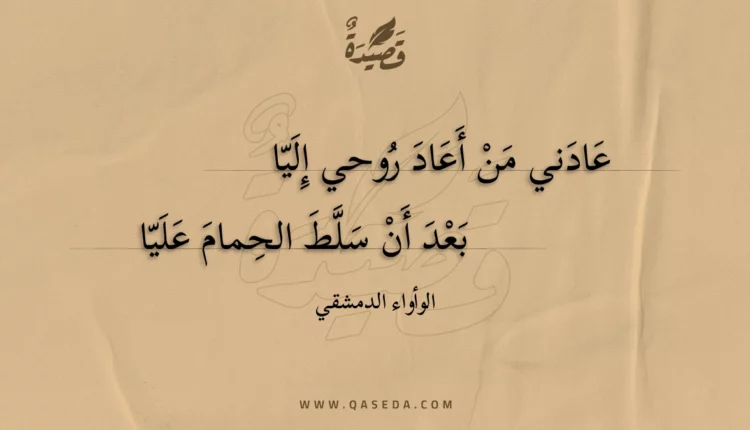 قَصِيْدَةٌ
عَادَني مَنْ أَعَادَ رُوحي إِلَيّا
بَعْدَ أَنْ سَلَّطَ الحِمامَ عَلَيّا
الوأواء الدمشقي
WWW.QASEDA.COM